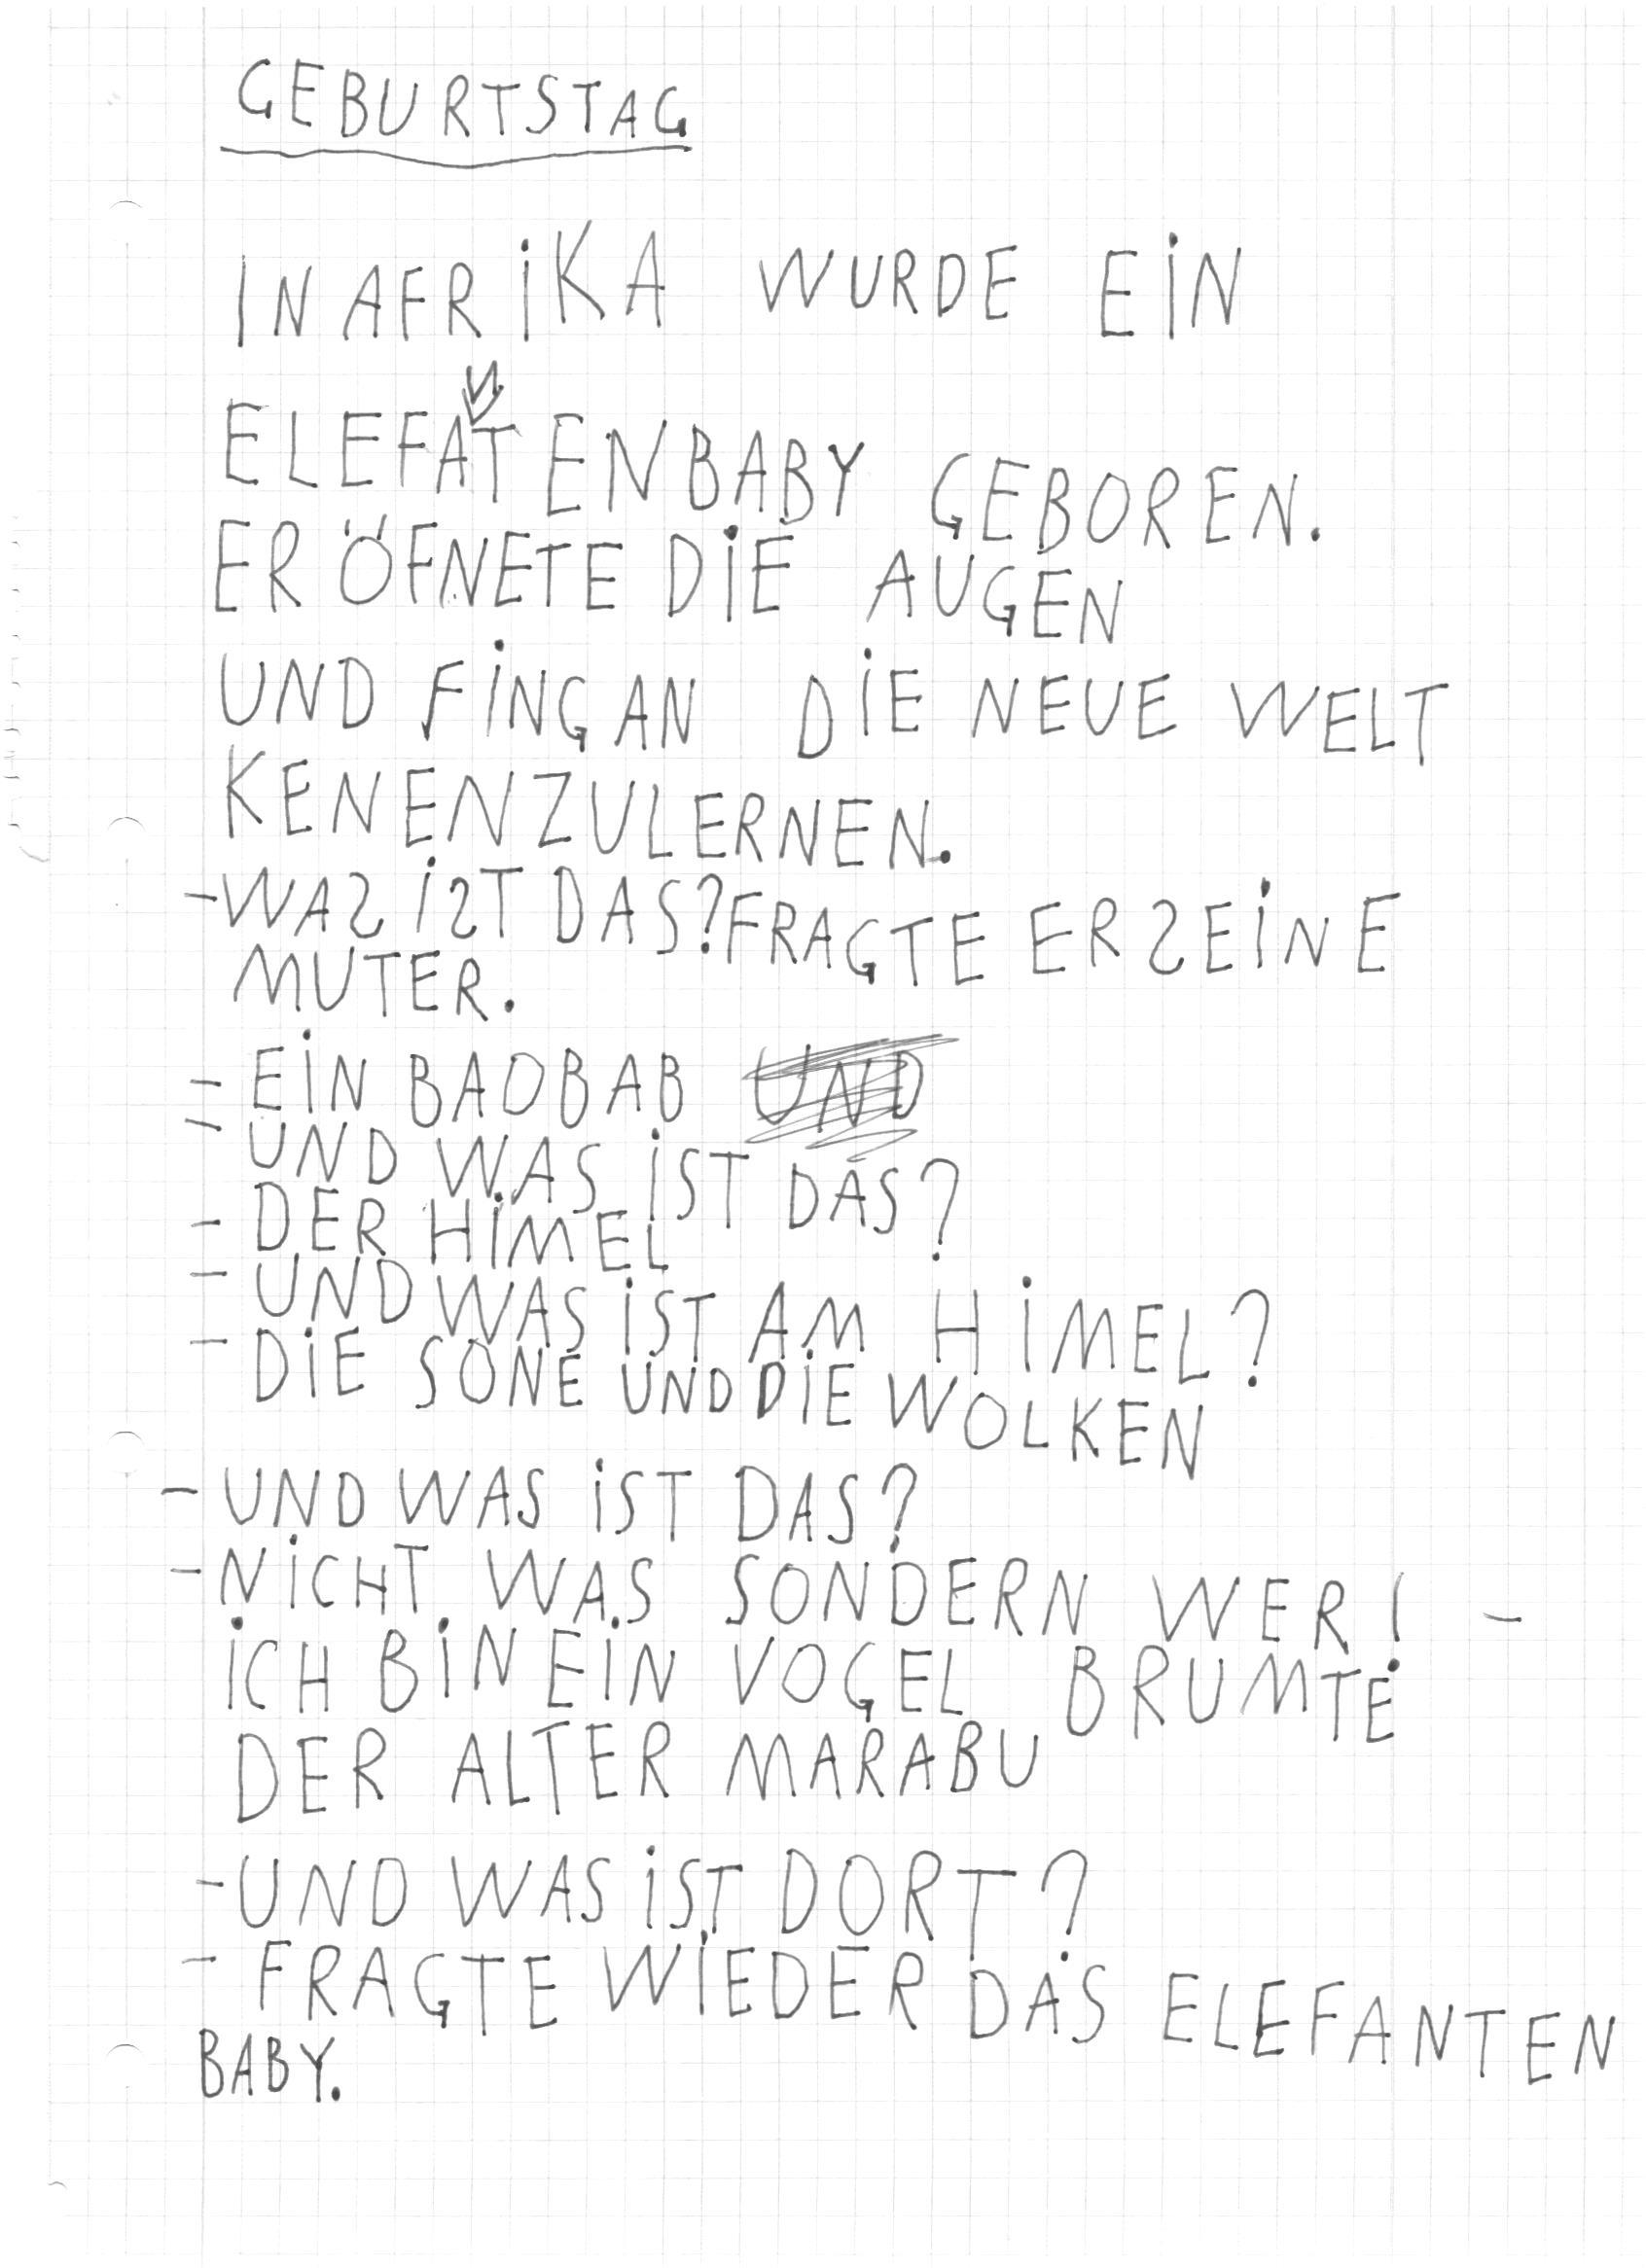 GEBURTSTAG
IN AFRiKA WURDE EiN
ELEFANTENBABY GEBOREN.
ER ÖFNETE DiE AUGEN
UND FiNG AN DiE NEUE WELT
KENENZULERNEN.
-WAS iST DAS? FRAGTE ER SEiNE
MUTER.
- EiN BAOBAB UND
- UND WAS iST DAS?
- DER HiMEL
- UND WAS iST AM HiMEL?
- DiE SONE UND DiE WOLKEN
- UND WAS iST DAS?
- NiCHT WAS SONDERN WER! -
iCH BiN EiN VOGEL BRUMTE
DER ALTER MARABU
- UND WAS iST DORT?
- FRAGTE WiEDER DAS ELEFANTEN
BABY.